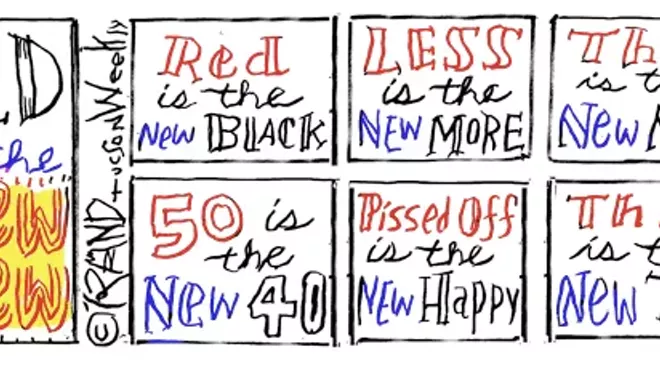 D
the
ew
ew
©RAND+ucsonWeekly
Red
is the
New BLACK
LESS
is the
NEW MORE
Th
is t
New
50 is
the
New 40
Pissed Off
is the
NEW Happy
Th
is t
New